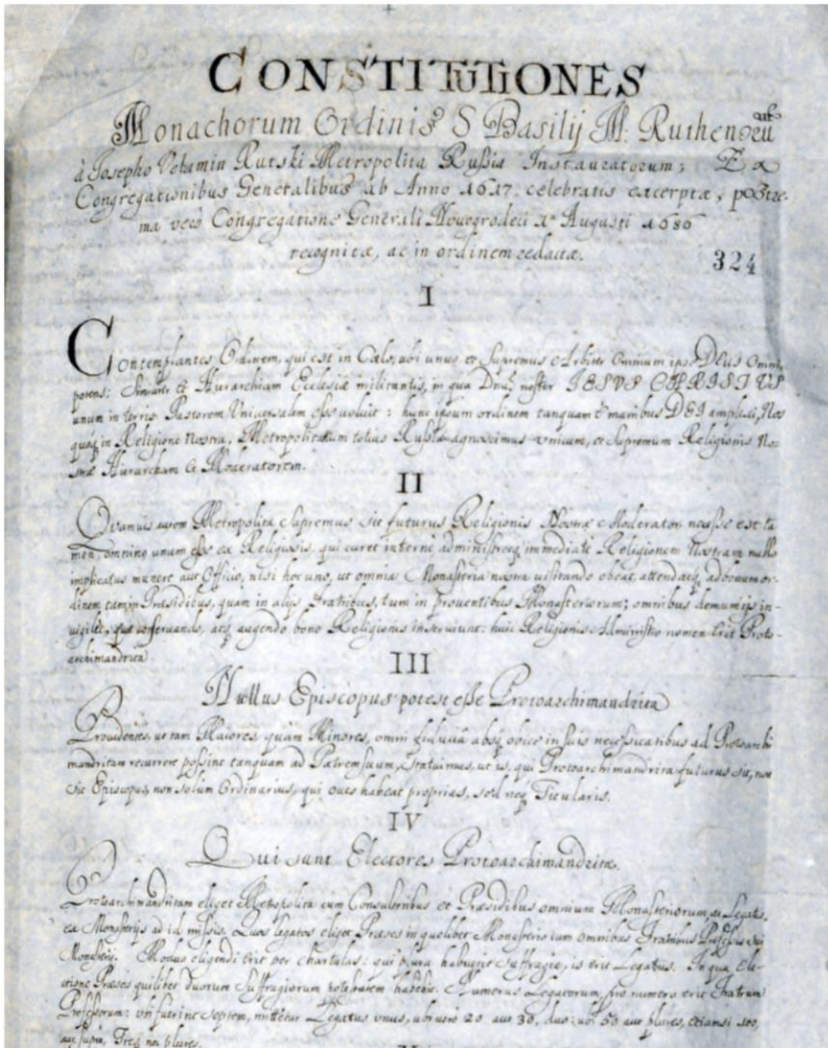 CONSTITUTIONES
Monachorum Ordinis S Basilij M: Ruthenorū
à Josepho Velamin Rutski Metropolita Rußiæ Instauratorum; Ex
Congregationibus Generalibus ab Anno 1617 celebratis excerptæ, postre-
ma vero Congregatione Generali Novogrodeci Augusti 1686
recognitæ, ac in ordinem redactæ.
324
I
Contemplantes Ordinem, qui est in Cœlo, ubi unus et Supremus Arbiter Omnium ipse DEUS Omni
potens: Hierarchiam Ecclesiæ militantis, in qua noster IESVS CHRISTVS
unum in terris Pastorem Universalem esse voluit: hunc ipsum ordinem tanquam è manibus DEI amplexi, Nos
quoq in Religione Nostra, Metropolitam totius Rußiæ agnoscimus unicum, et Supremum Religionis No-
stræ Hierarcham & Moderatorem.
II
Quamuis autem Metropolita Supremus sit futurus Religionis Nostræ Moderator, necesse est ta
men, omnino unum esse ex Religiosis, qui curet internè administretq immediatè Religionem Nostram nullo
implicatus munere aut Officio, nisi hoc uno, ut omnia Monasteria nostra visitando obeat, attendatq, ad bonum or-
dinem tam in Præsidibus, quam in alijs Fratribus, tum in proventibus Monasteriorum; omnibus demum ijs in-
vigilet, conservando, atq augendo bono Religionis inserviunt: huic Religionis nomen erit Proto-
archimandrita
III
Nullus Episcopus potest esse Protoarchimandrita
Providentes, ut tam Maiores quam Minores, omni absq obice in suis necessitatibus ad Protoarchi
mandritam recurrere possint tanquam ad Patrem suum, statuimus, ut is, qui Protoarchimandrita futurus sit, non
sit Episcopus, non solum Ordinarius, qui oves habeat proprias, sed neq Titularis.
IV
Qui sunt Electores Protoarchimandritæ
Protoarchimandritam eliget Metropolita cum Consultoribus et Præsidibus omnium Monasteriorum, ac Legatis,
ex Monasterijs ad id missis. Quos legatos eliget Præses in quolibet Monasterio cum omnibus Fratribus Professis sui
Monasterij. Modus eligendi erit per chartulas: qui plura habuerit suffragia, is erit Legatus. In qua Ele-
ctione Præses quilibet duorum Suffragiorum potestatem habebit. Numerus Legatorum, pro numero erit Fratrum
Professorum: ubi fuerint septem, mittetur Legatus unus, ubi vero 20 aut 30, duo: ubi 50 aut plures, etiamsi 100,
aut supra, Tres non plures.